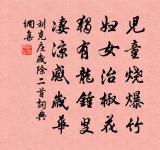 兒童燒爆竹
婦女治椒花
獨有龍鍾叟
淒涼感歲華
劉克庄歲除二首詞典
網集